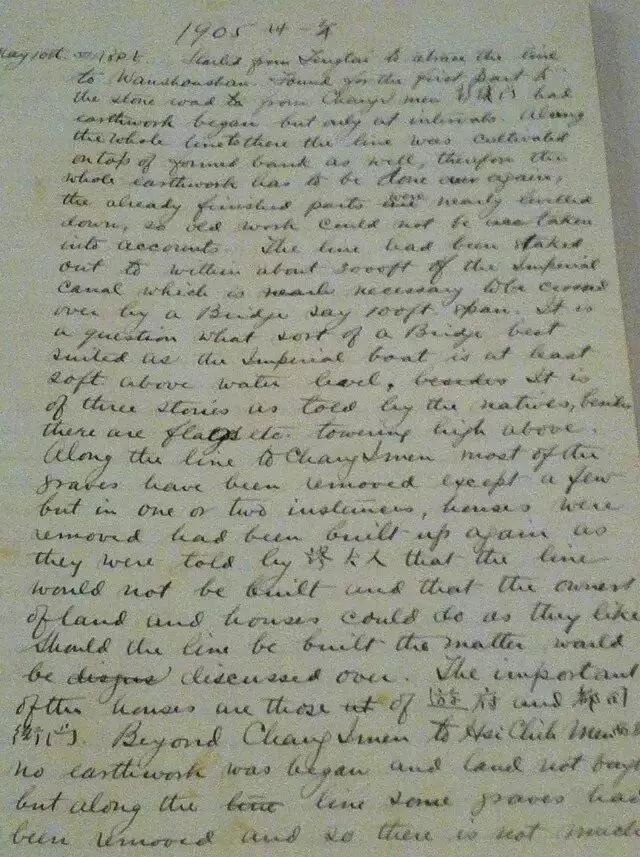 1905
May 10th Started from Fengtai to above the line
to Wanshoushan. Found for the first part to
the stone road to from Changimen had
earthwork began but only at intervals. Along
the whole line to there the line was cultivated
on top of formed bank as well, therefore the
whole earthwork has to be done over again,
the already finished parts were nearly levelled
down, so old work could not be taken
into accounts. The line had been staked
out to within about 3000ft of the Imperial
Canal which is necessary to be crossed
over by a Bridge say 100ft span. It is
a question what sort of a Bridge best
suited as the Imperial boat is at least
50ft above water level, besides it is
of three stories as told by the natives, besides
there are flags etc. towering high above.
Along the line to Changimen most of the
graves have been removed except a few
but in one or two instences, houses were
removed had been built up again as
they were told by 大人 that the line
would not be built and that the owners
of land and houses could do as they like
should the line be built the matter would
be discussed over. The important
of the houses are those of 遊府 and 都司
衙門. Beyond Changimen to Hsi Chih Men
no earthwork was began and land not bought
but along the line some graves had
been removed and so there is not much